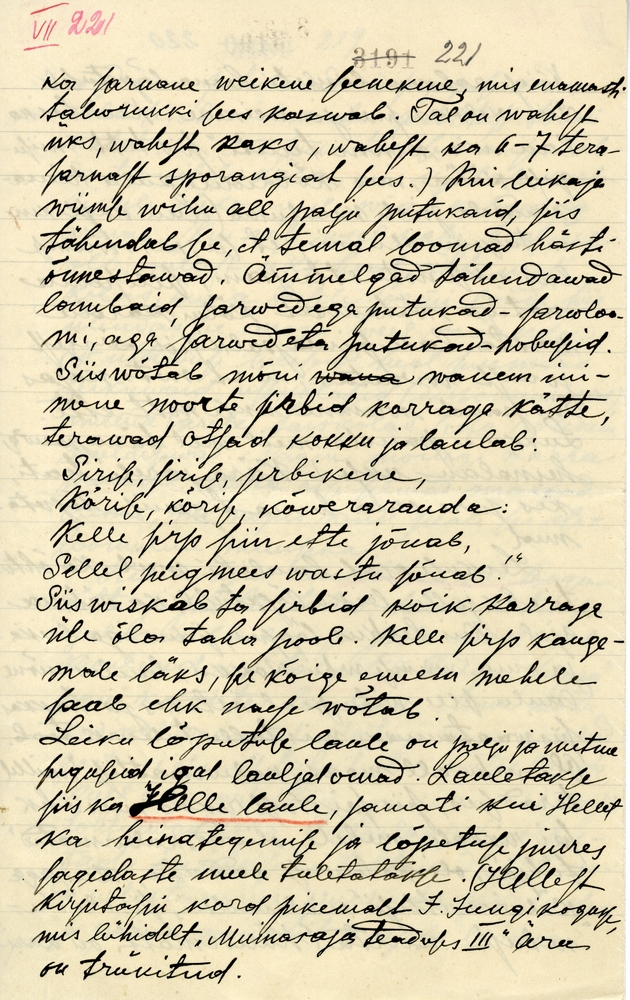 VII 221
3191 221
ka sarnane weikene seenekene, mis enamasti
talwerukki sees kaswab. Tal on wahest
üks, wahest kaks, wahest ka 6-7 tera-
sarnast sporangiat sees.) Kui leikaja
wiimse wihu all palju putukaid, siis
tähendab se, et temal loomad hästi
õnnestawad. Ämmelgad tähendawad
lambaid, sarwedega putukad - sarwloo-
mi, aga sarwedeta putukad - hobusid.
Siis wõtab mõni wana wanem ini-
mene noorte sirbid korraga kätte,
terawad otsad kokku ja laulab:
Sirise, sirise, sirbikene,
Kõrise, kõrise, kõwerarauda:
Kelle sirp siin ette jõuab,
Sellel peigmees wastu jõuab!"
Siis wiskab ta sirbid kõik korraga
üle õla taha poole. Kelle sirp kauge-
male läks, se kõige ennem mehele
saab ehk naese wõtab.
Leiku lõpetuse laule on palju ja mitme
sugusid igal lauljal omad. Lauletakse
siis ka Helle laule, samati kui Hellet
ka heinategemise ja lõpetuse juures
sagedaste meele tuletatakse. (Hellest
kirjutasin kord pikemalt J. Jungi kogusse,
mis lühidelt „Muinasaja teadus III" ära
on trükitud.